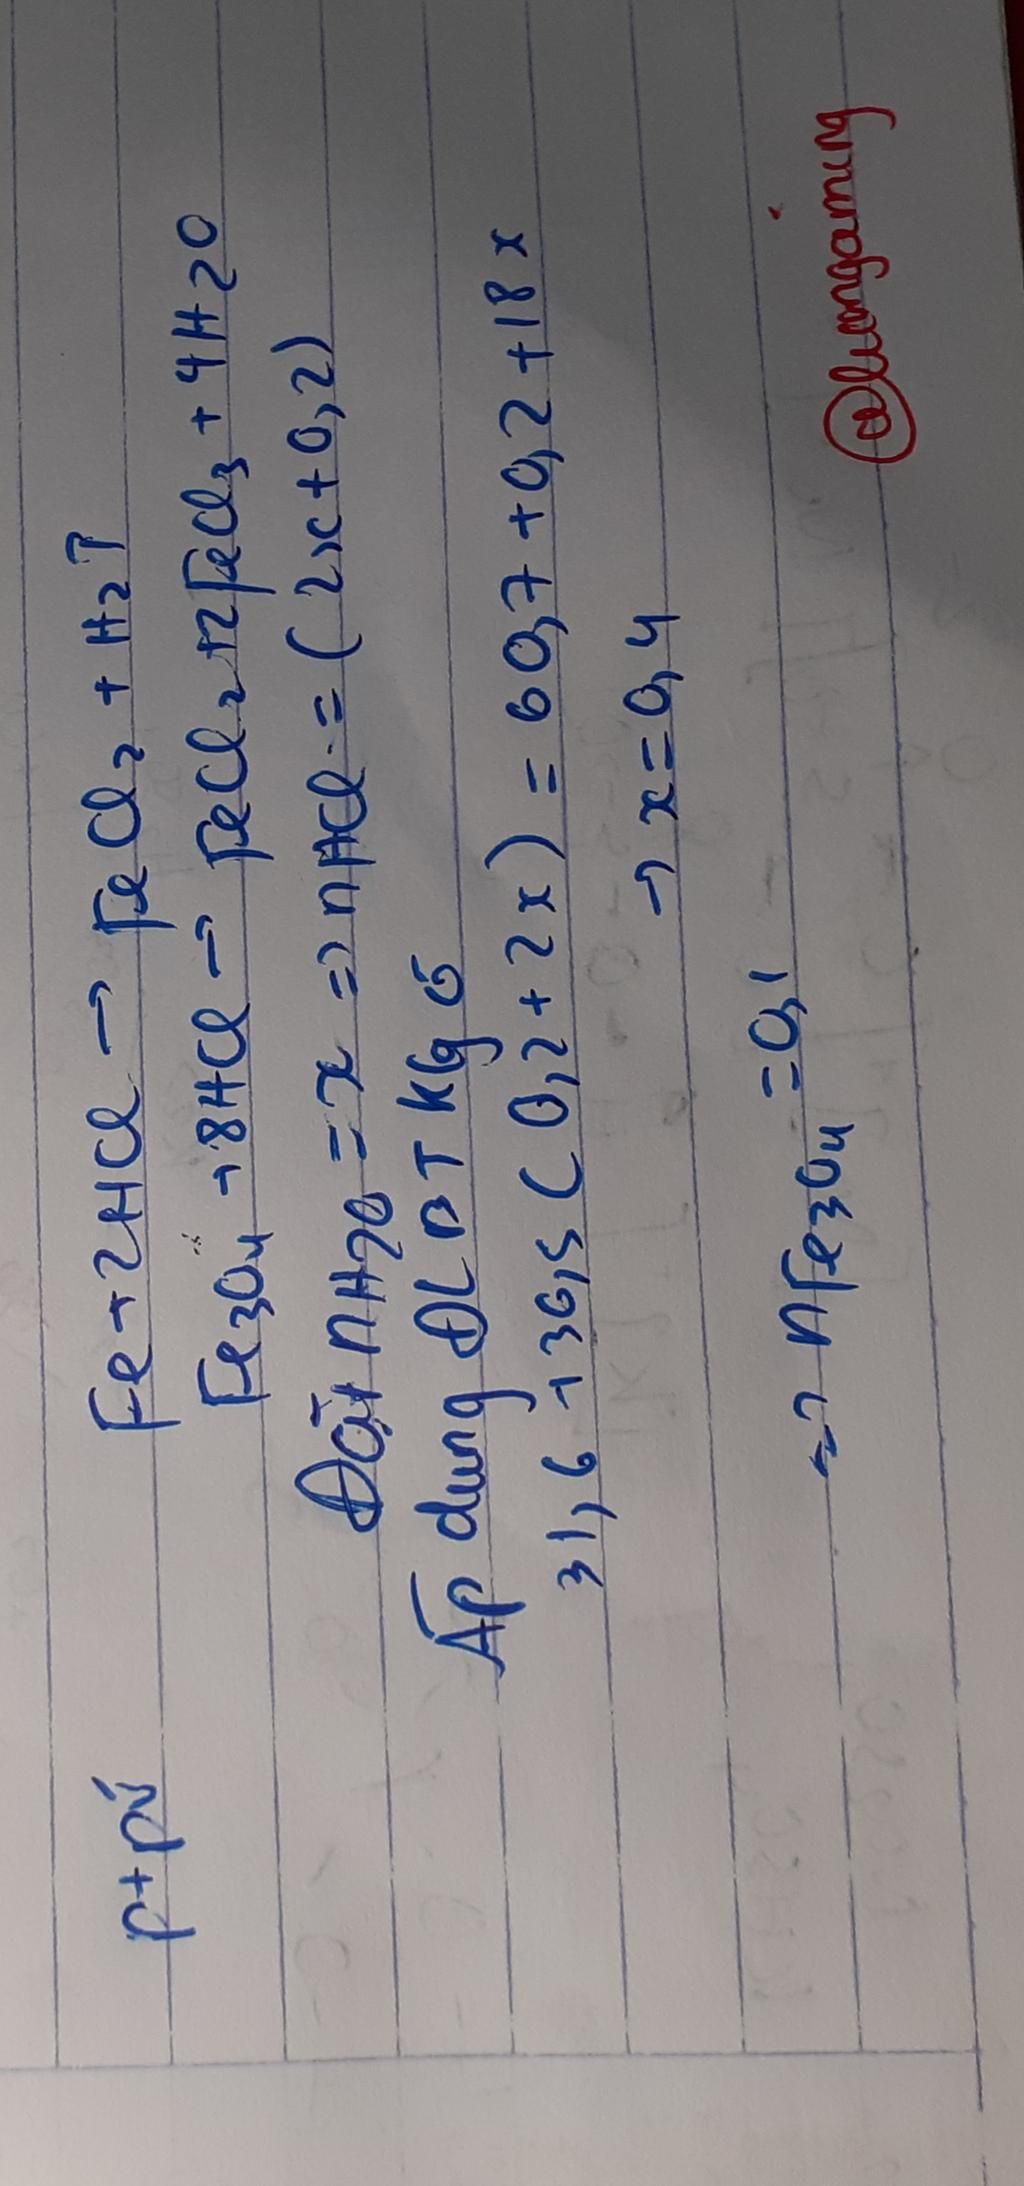 ptpứ
Fe + 2HCl → FeCl2 + H2↑
Fe3O4 + 8HCl → FeCl2 + 2FeCl3 + 4H2O
Đặt nH2O = x => nHCl = (2x + 0,2)
Áp dụng ĐLBTKL có
31,6 + 36,5 (0,2 + 2x) = 60,7 + 0,2 + 18x
→ x = 0,4
=> nFe3O4 = 0,1